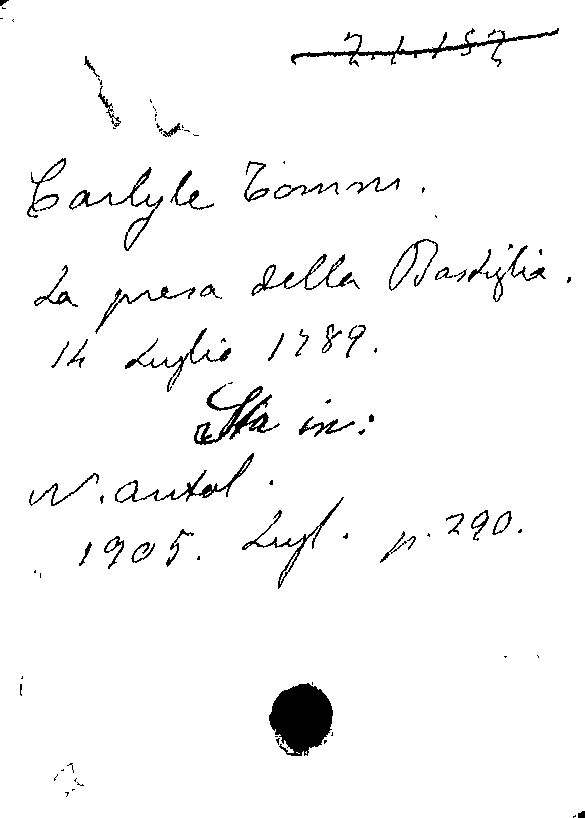 7.1.157
Carlyle Tomm.
La presa della Bastiglia.
14 Luglio 1789.
Sta in:
N. Antol.
1905. Lugl. p. 290.